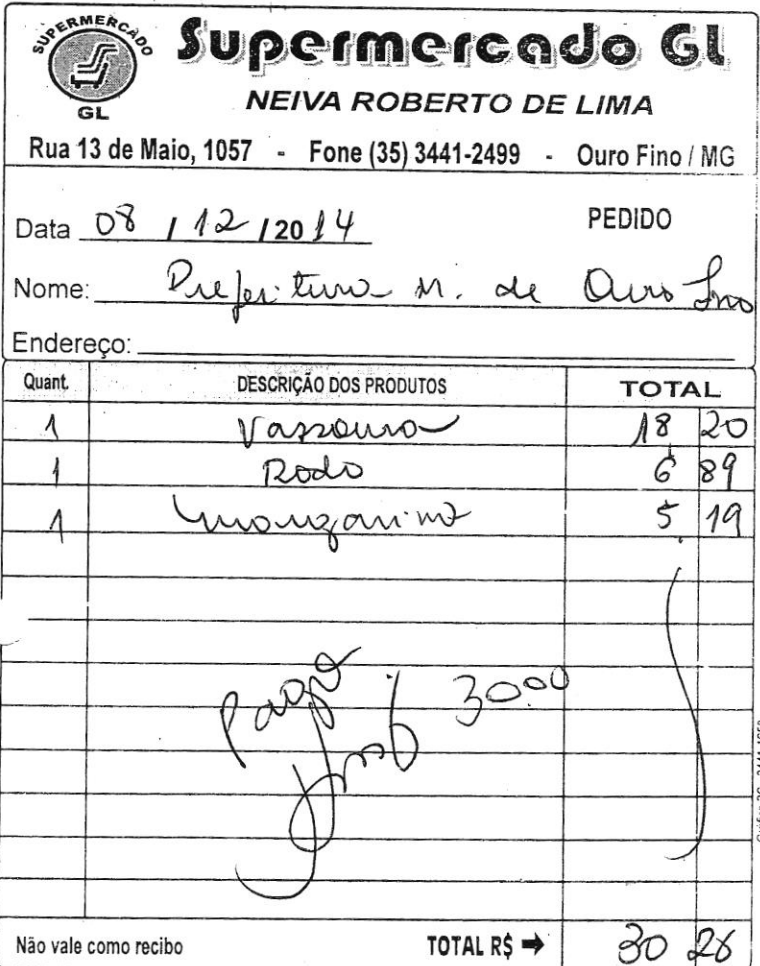 SUPERMERCADO GL
Supermercado GL
NEIVA ROBERTO DE LIMA
Rua 13 de Maio, 1057 - Fone (35) 3441-2499 - Ouro Fino / MG
Data 08 / 12 / 2014 PEDIDO
Nome: Prefeitura M. de Ouro Fino
Endereço:
Quant. DESCRIÇÃO DOS PRODUTOS TOTAL
1 Vassoura 18 20
1 Rodo 6 89
1 5 19
Pago 30 00
Não vale como recibo TOTAL R$ ➔ 30 28